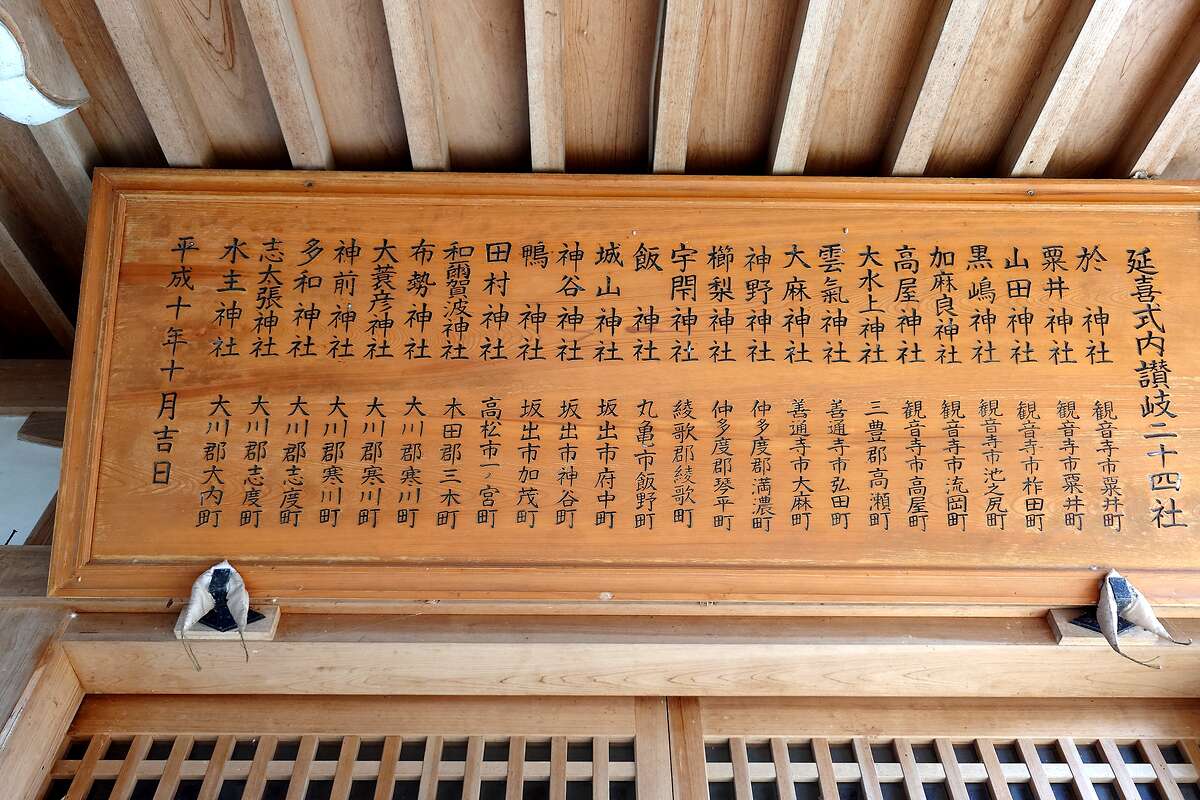 延喜式内讃岐二十四社
於神社 観音寺市粟井町
粟井神社 観音寺市粟井町
山田神社 観音寺市柞田町
黒嶋神社 観音寺市池之尻町
加麻良神社 観音寺市流岡町
高屋神社 観音寺市高屋町
大水上神社 三豊郡高瀬町
雲氣神社 善通寺市弘田町
大麻神社 善通寺市大麻町
神野神社 仲多度郡満濃町
櫛梨神社 仲多度郡琴平町
宇閇神社 綾歌郡綾歌町
飯神社 丸亀市飯野町
城山神社 坂出市府中町
神谷神社 坂出市神谷町
鴨神社 坂出市加茂町
田村神社 高松市一ノ宮町
和爾賀波神社 木田郡三木町
布勢神社 大川郡寒川町
大蓑彦神社 大川郡寒川町
神前神社 大川郡寒川町
多和神社 大川郡志度町
志太張神社 大川郡志度町
水主神社 大川郡大内町
平成十年十月吉日